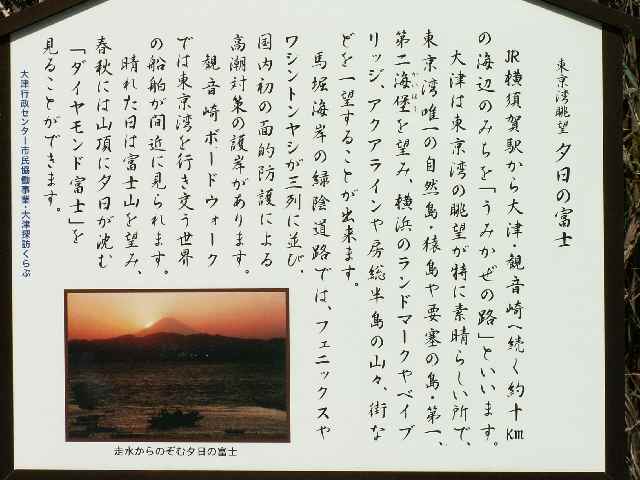 東京湾眺望 夕日の富士
JR横須賀駅から大津・観音崎へ続く約十Km
の海辺のみちを「うみかぜの路」といいます。
大津は東京湾の眺望が特に素晴らしい所で、
東京湾唯一の自然島・猿島や要塞の島・第一、
第二海堡を望み、横浜のランドマークやベイブ
かいほう
リッジ、アクアラインや房総半島の山々、街な
どを一望することが出来ます。
馬堀海岸の緑陰道路では、フェニックスや
ワシントンヤシが三列に並び、
国内初の面的防護による
高潮対策の護岸があります。
観音崎ボードウォーク
では東京湾を行き交う世界
の船舶が間近に見られます。
晴れた日は富士山を望み、
春秋には山頂に夕日が沈む
「ダイヤモンド富士」を
見ることができます。
大津行政センター市民協働事業・大津探訪くらぶ
走水からのぞむ夕日の富士